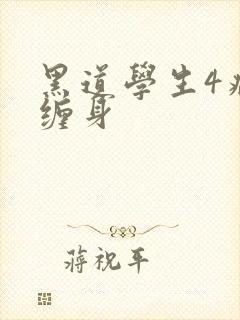 黑道學生4
缠身
蔣祝平